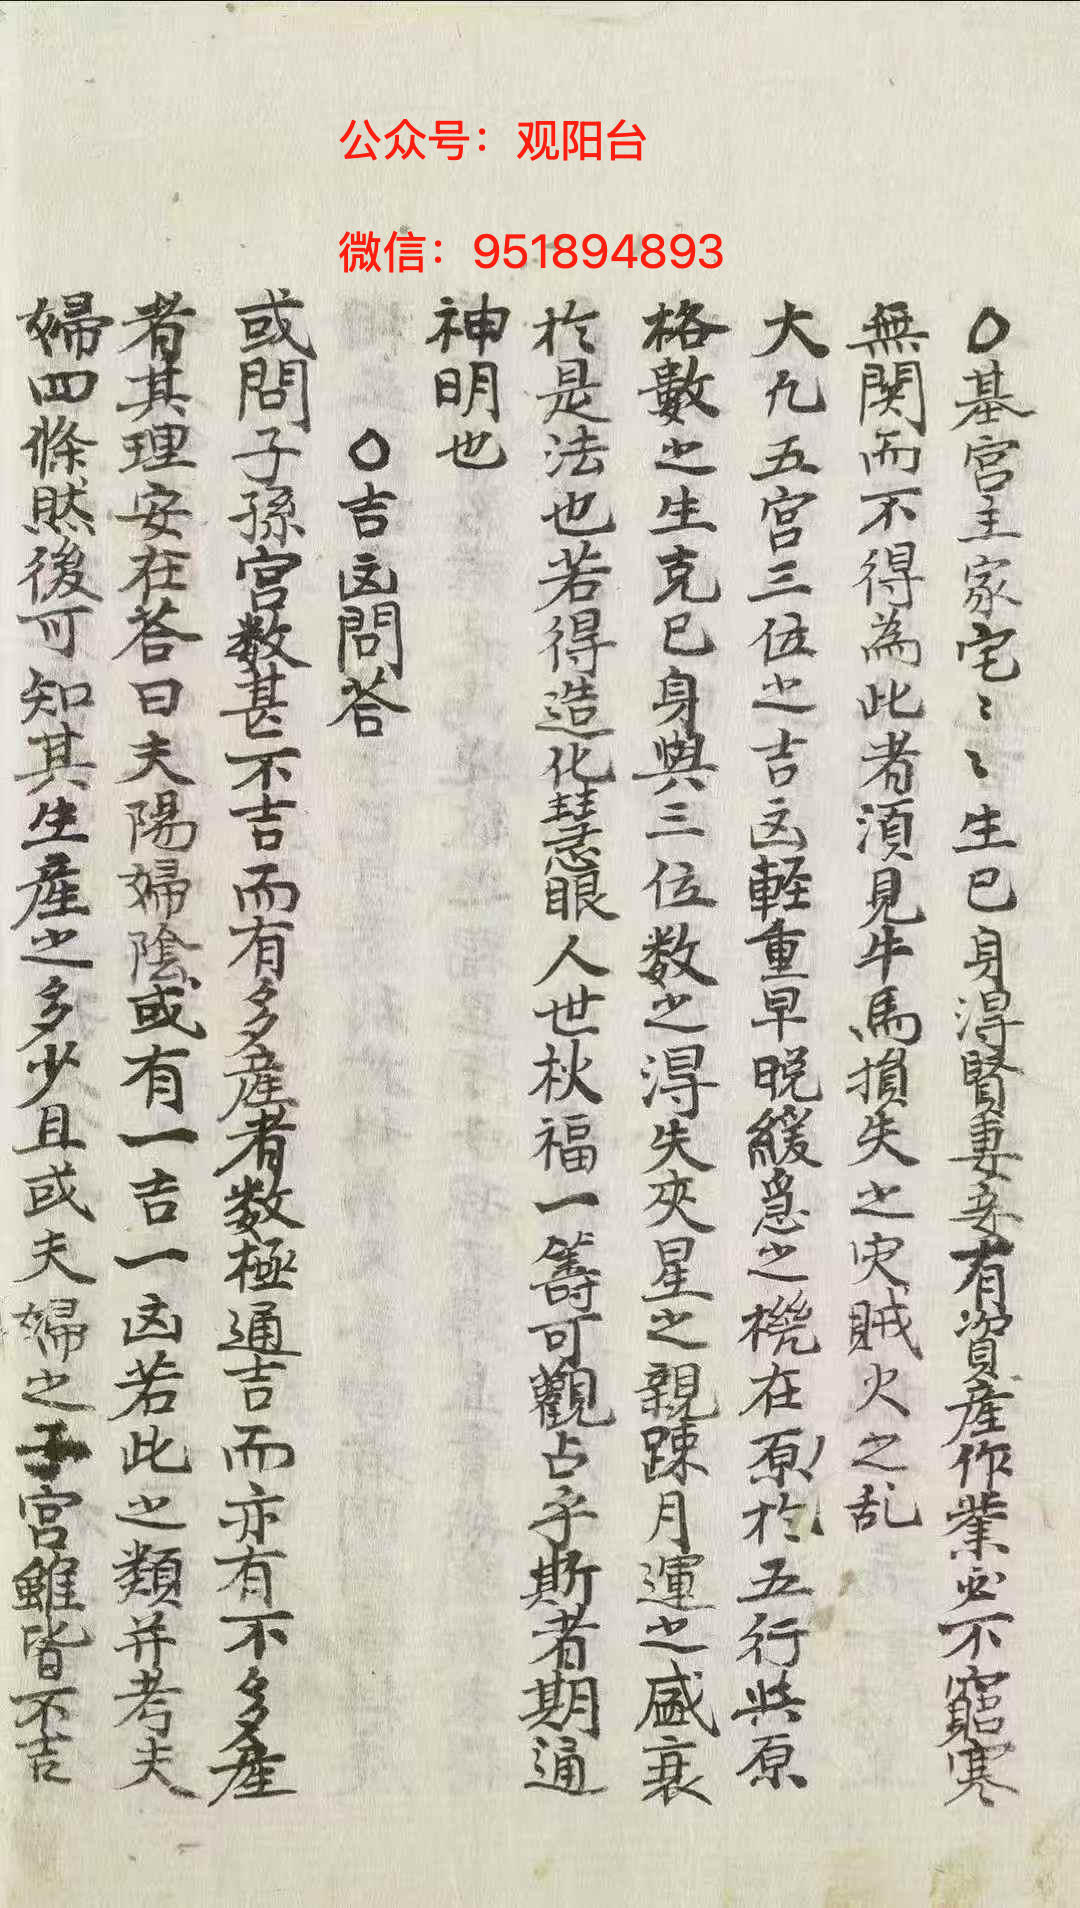 公众号：观阳台
微信：951894893
○基宮主家宅〻〻生已身得賢妻妾有資産作業必不窮寒
無関而不得為此者湏見牛馬損失之灾賊火之乱
大凢五宮三位之吉凶軽重早晩緩急之機在原於五行与原
格數之生克已身與三位数之得失夾星之親踈月運之盛衰
於是法也若得造化慧眼人世秋福一籌可觀占乎斯者期通
神明也
○吉凶問荅
或問子孫宮数甚不吉而有多産者数極通吉而亦有不多産
者其理安在荅曰夫陽婦陰或有一吉一凶若此之類并考夫
婦四條然後可知其生産之多少且或夫婦之子宮雖皆不吉